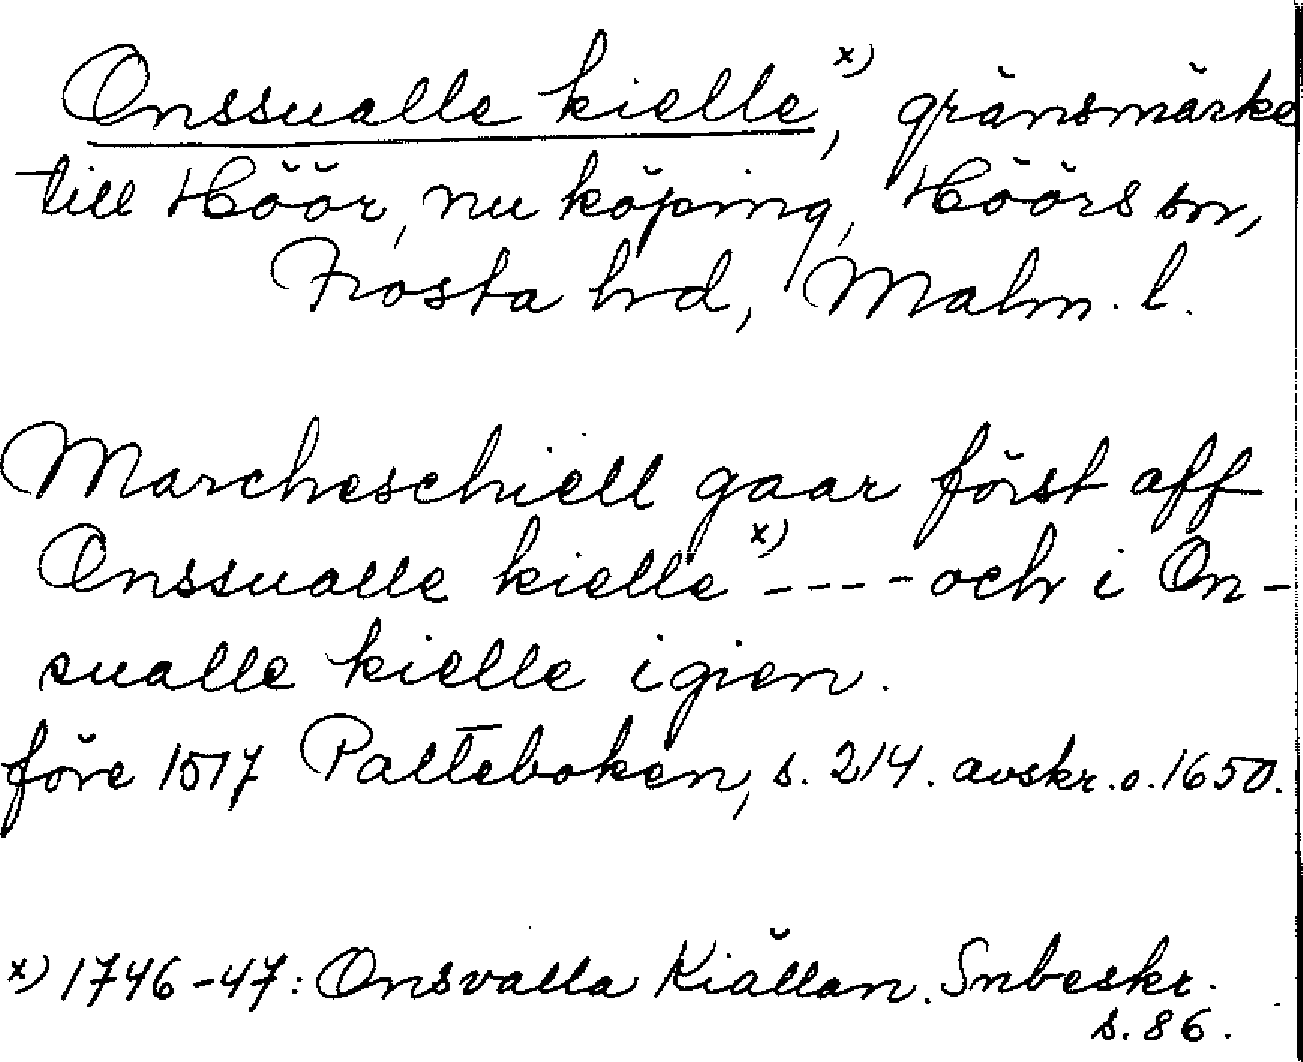 Onssualle kielle x), gränsmärke
till Höör, nu köping, Höörs sn,
Frosta hrd, Malm. l.
Marcheschiell gaar först aff
Onssualle kielle x) - - - - och i On-
sualle kielle igien.
före 1517 Palteboken, s. 214. avskr. o. 1650.
x) 1746-47: Onsvalla Kiällan. Snbeskr.
s. 86.